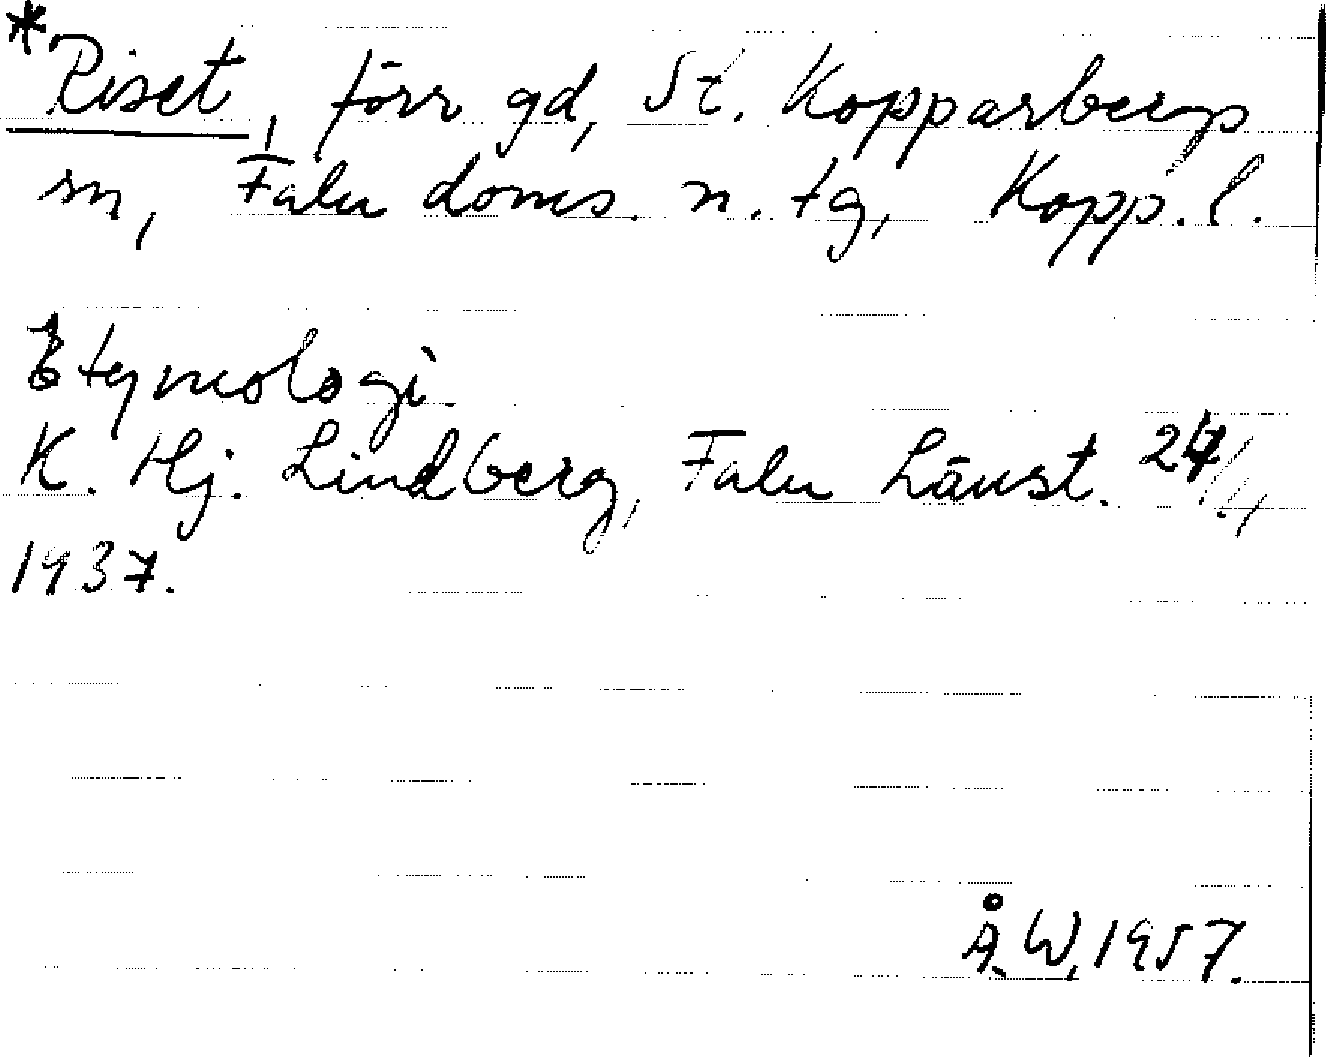 *Riset, förr gd, St. Kopparbergs
sn, Falu doms. n. tg, Kopp. l.
Etymologi.
K. Hj. Lindberg, Falu Länst. 24/4
1937.
Å.W. 1957.